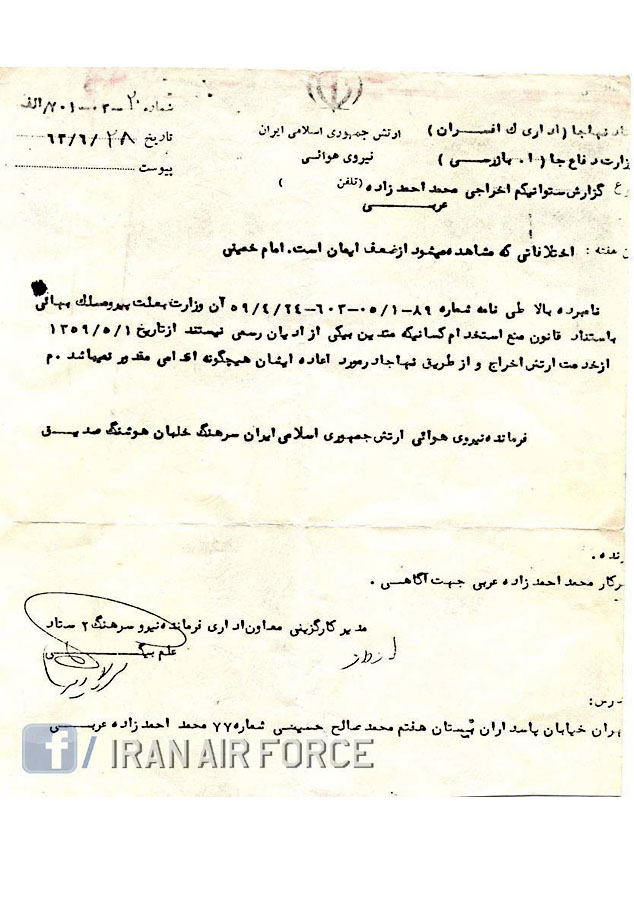 شماره ۲-۰۳-۷۰۱/الف
تاریخ ۶۳/۶/۲۸
پیوست
ارتش جمهوری اسلامی ایران
نیروی هوائی
(تلفن )
نهاجا (اداری ک افسران)
زارت دفاع جا (ا. بازرسی)
گزارش ستوانیکم اخراجی محمد احمد زاده
عربی
هفته : اختلافاتی که مشاهده میشود از ضعف ایمان است. امام خمینی
نامبرده بالا طی نامه شماره ۸۹-۰۵/۱-۶۰۳-۵۹/۴/۲۴ آن وزارت بعلت پیرو مسلک بهائی
باستناد قانون منع استخدام کسانیکه متدین بیکی از ادیان رسمی نیستند از تاریخ ۱۳۵۹/۵/۱
از خدمت ارتش اخراج و از طریق نهاجا در مورد اعاده ایشان هیچگونه اقدامی مقدور نمیباشد .م
فرمانده نیروی هوائی ارتش جمهوری اسلامی ایران سرهنگ خلبان هوشنگ صدیق
رنده .
رکار محمد احمد زاده عربی جهت آگاهی .
مدیر کارگزینی معاون اداری فرمانده نیرو سرهنگ ۲ ستاد
علم بیگی
درس:
هران خیابان پاسداران نیستان هفتم محمد صالح حسینی شماره ۷۷ محمد احمد زاده عربی
f/ IRAN AIR FORCE